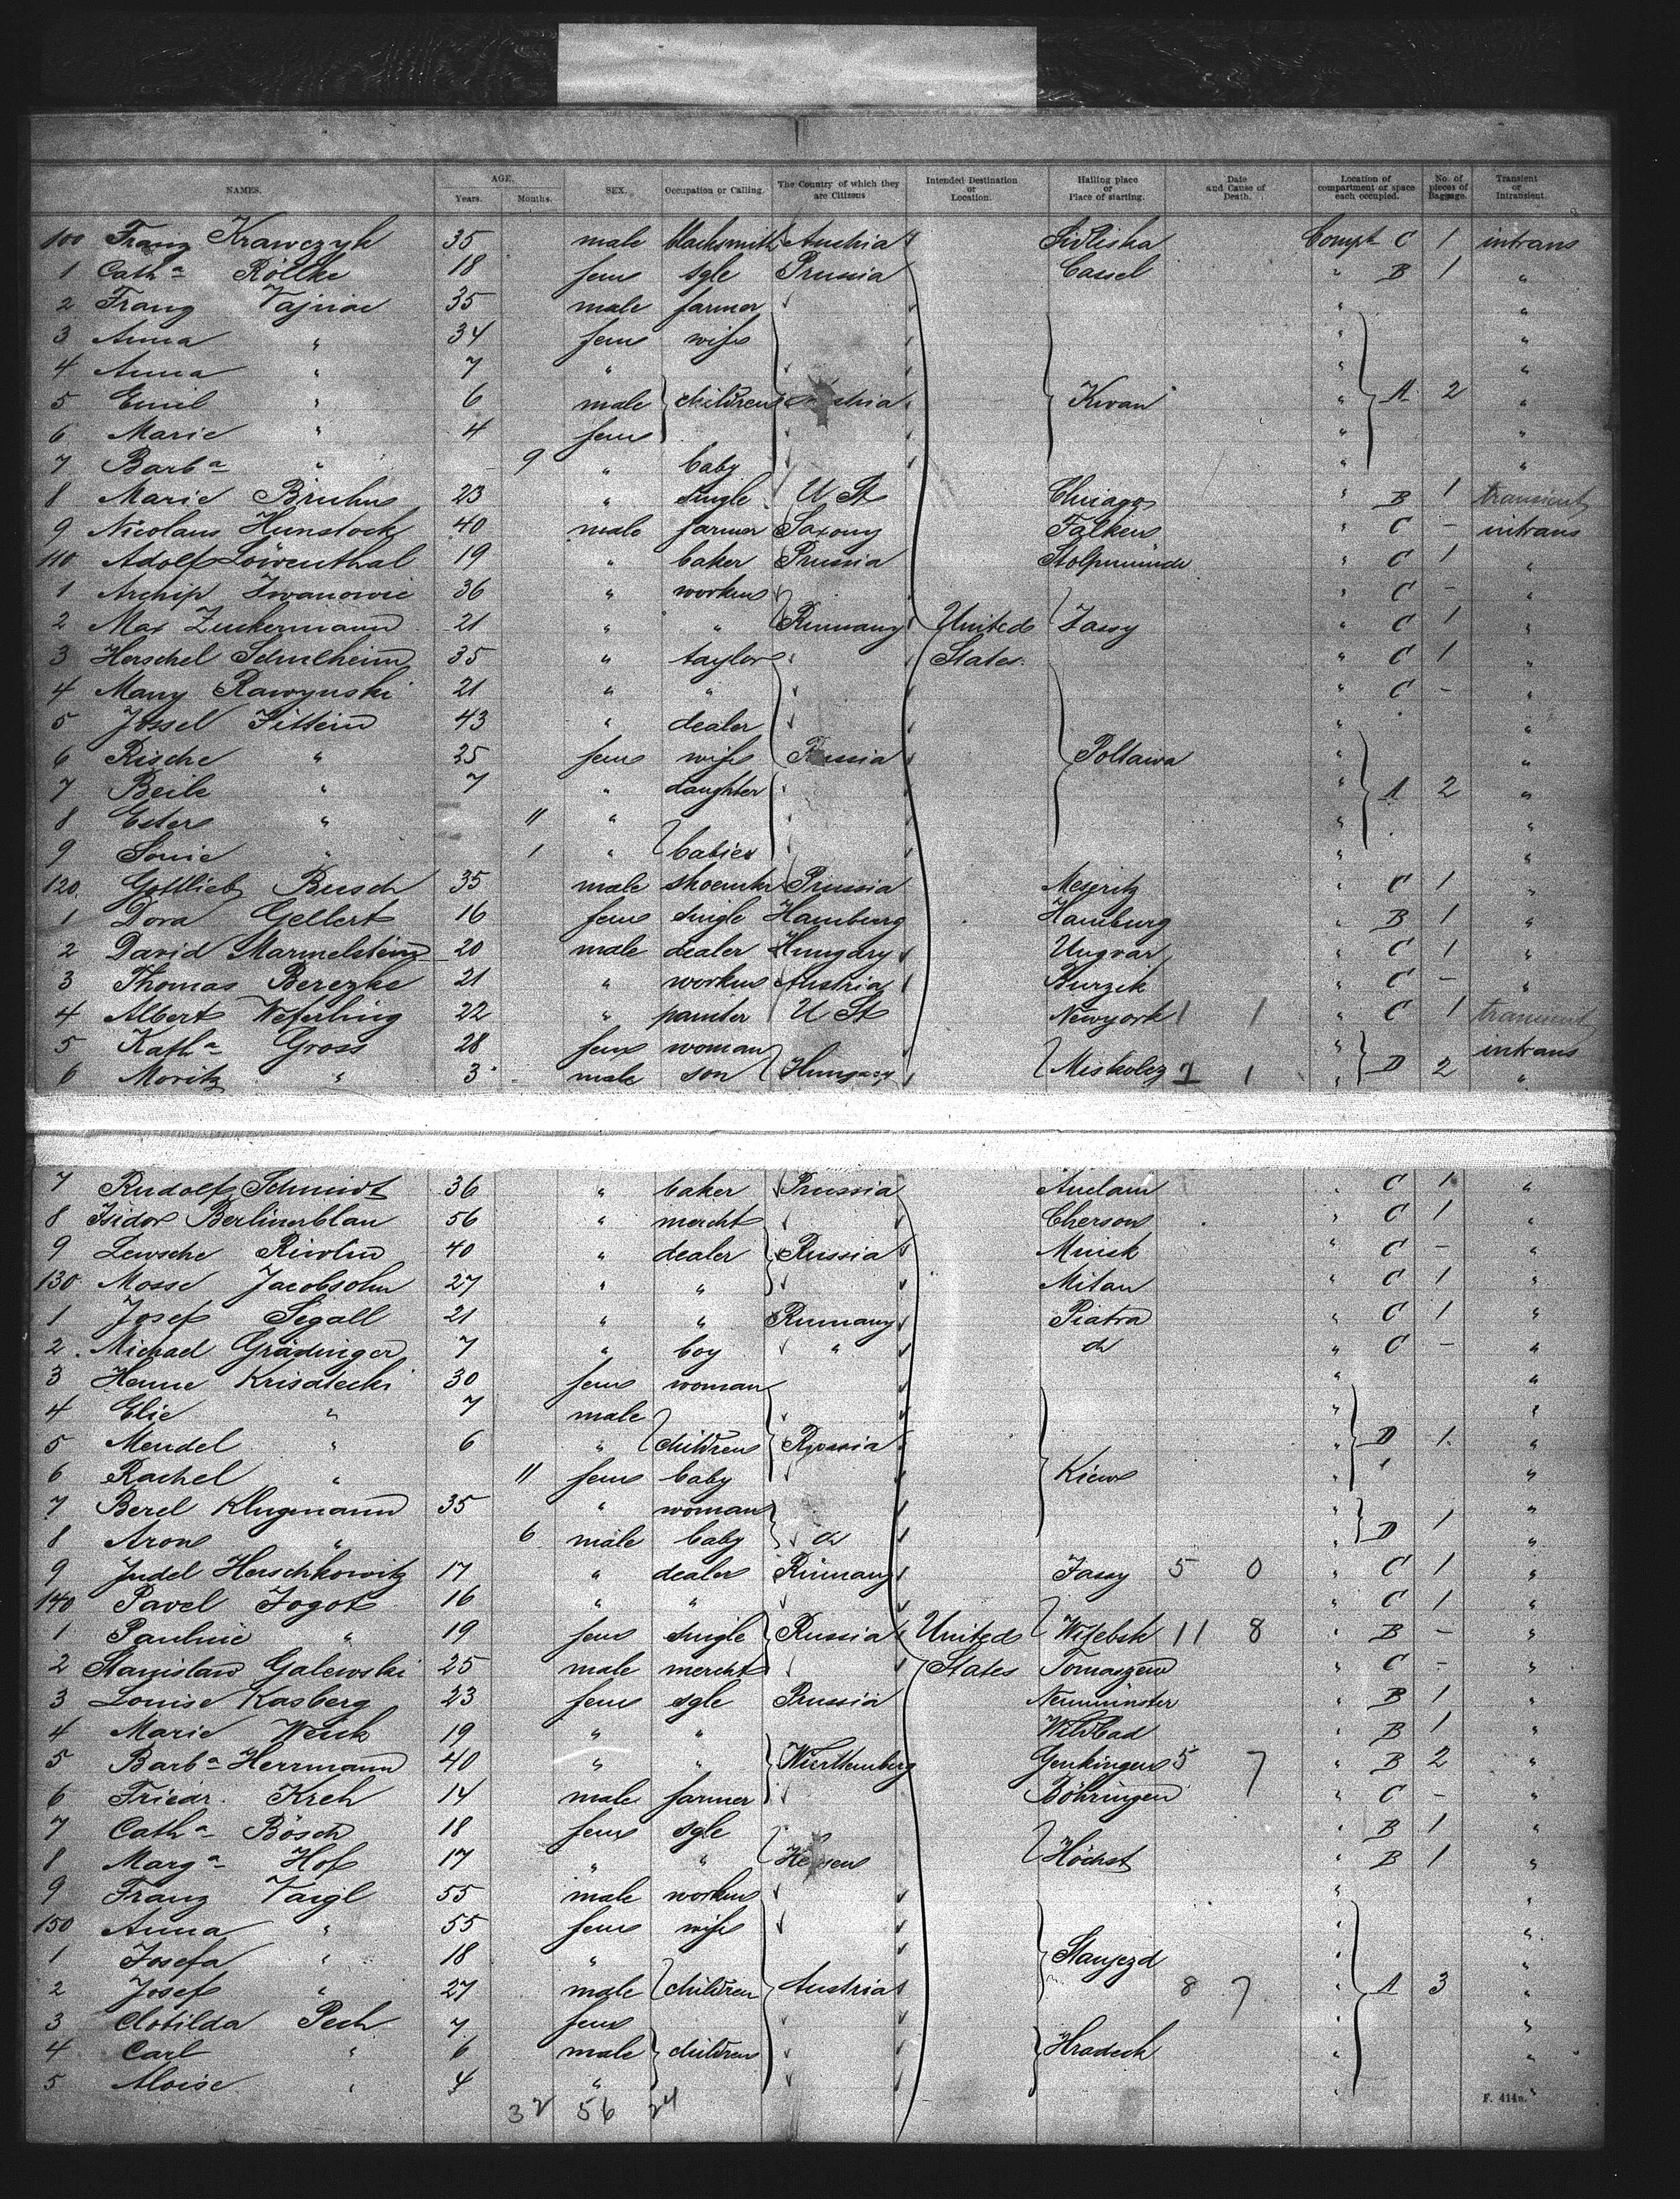 NAMES. AGE. Years. Months. SEX. Occupation or Calling. The Country of which they are Citizens Intended Destination or Location. Hailing place or Place of starting. Date and Cause of Death. Location of compartment or space each occupied. No. of pieces of Baggage. Transient or Intransient.
100 Franz Krawczyk 35 male blacksmith Austria Compt C 1 intrans
1 Cath a Röllke 18 fem sgle Prussia Cassel " B 1 "
2 Franz 35 male farmer " "
3 Anna " 34 fem wife " "
4 Anna " 7 " " "
5 Emil " 6 male children Kwan " A 2 "
6 Marie " 4 fem " "
7 Barb a " 9 " baby " "
8 Marie Bruhn 23 " single U St Chicago " B 1 transient
9 Nicolaus Hunstock 40 male farmer Saxony Falken " C - intrans
110 Adolf Löwenthal 19 " baker Prussia Stolpmünde " C 1 "
1 Archip Iwanowic 36 " workm " C - "
2 Max Zuckermann 21 " " Rumany United Jassy " C 1 "
3 Herschel Schulheim 35 " taylor States " C 1 "
4 Many Rawynski 21 " " " C - "
5 Jossel Fittein 43 " dealer " "
6 Rische " 25 fem wife Russia Poltawa " "
7 Beile " 7 " daughter " A 2 "
8 Ester " 11 " " "
9 Sonie " 1 " babies " "
120 Gottlieb Busch 35 male shoemkr Prussia Meseritz " C 1 "
1 Dora Gellert 16 fem single Hamburg Hamburg " B 1 "
2 David Marmelstein 20 male dealer Hungary Ungvar " C 1 "
3 Thomas Berezke 21 " workm Austria Burzik " C - "
4 Albert Weferling 22 " painter U St Newyork 1 1 " C 1 transient
5 Kath a Gross 28 fem woman " intrans
6 Moritz " 3 male son Hungary Miskolcz 1 1 " D 2 "
7 Rudolf Schmidt 36 " baker Prussia Anclam " C 1 "
8 Isidor Berlinerblau 56 " mercht Cherson " C 1 "
9 Lewsche Riwlin 40 " dealer Russia Minsk " C - "
130 Mosse Jacobsohn 27 " " Mitau " C 1 "
1 Josef Segall 21 " " Rumany Piatra " C 1 "
2 Michael Grädinger 7 " boy " do " C - "
3 Henne Krisalecki 30 fem woman " "
4 Elie " 7 male " "
5 Mendel " 6 " children Russia " D 1 "
6 Rachel " 11 fem baby Kiew " "
7 Berel Klugmann 35 " woman " "
8 Aron " 6 male baby do " D 1 "
9 Judel Herschkowitz 17 " dealer Rumany Jassy 5 0 " C 1 "
140 Pavel Jogot 16 " " " C 1 "
1 Pauline " 19 fem single Russia United Witebsk 11 8 " B - "
2 Stanislaw Galewski 25 male mercht States Tomaszew " C - "
3 Louise Kasberg 23 fem sgle Prussia Neumünster " B 1 "
4 Marie Weick 19 " " Wildbad " B 1 "
5 Barb a Herrmann 40 " " Wuerttemberg Genkingen 5 7 " B 2 "
6 Friedr. Kreh 14 male farmer Böhringen " C - "
7 Cath a Bösch 18 fem sgle " B 1 "
8 Marg a Hof 17 " " Hessen Höchst " B 1 "
9 Franz Vaigl 55 male workm " "
150 Anna " 55 fem wife " "
1 Josefa " 18 " " "
2 Josef " 27 male children Austria 8 7 " A 3 "
3 Clotilda Pech 7 fem " "
4 Carl " 6 male children Hradeck " "
5 Aloise " 4 " " "
32 56 24
F. 414a.